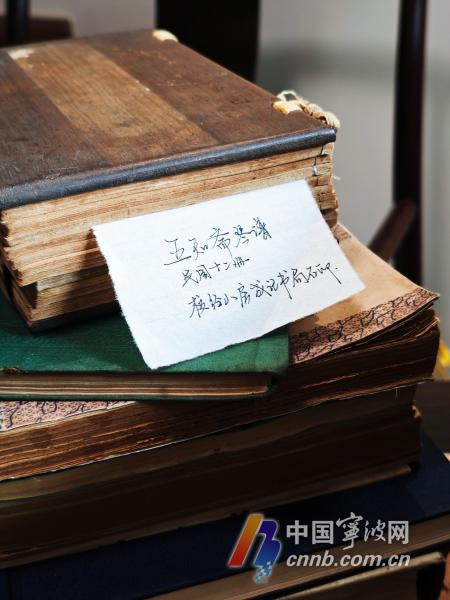 五知斋琴谱
民国十二册
校经山房成记书局石印.
中国宁波网
cnnb.com.cn